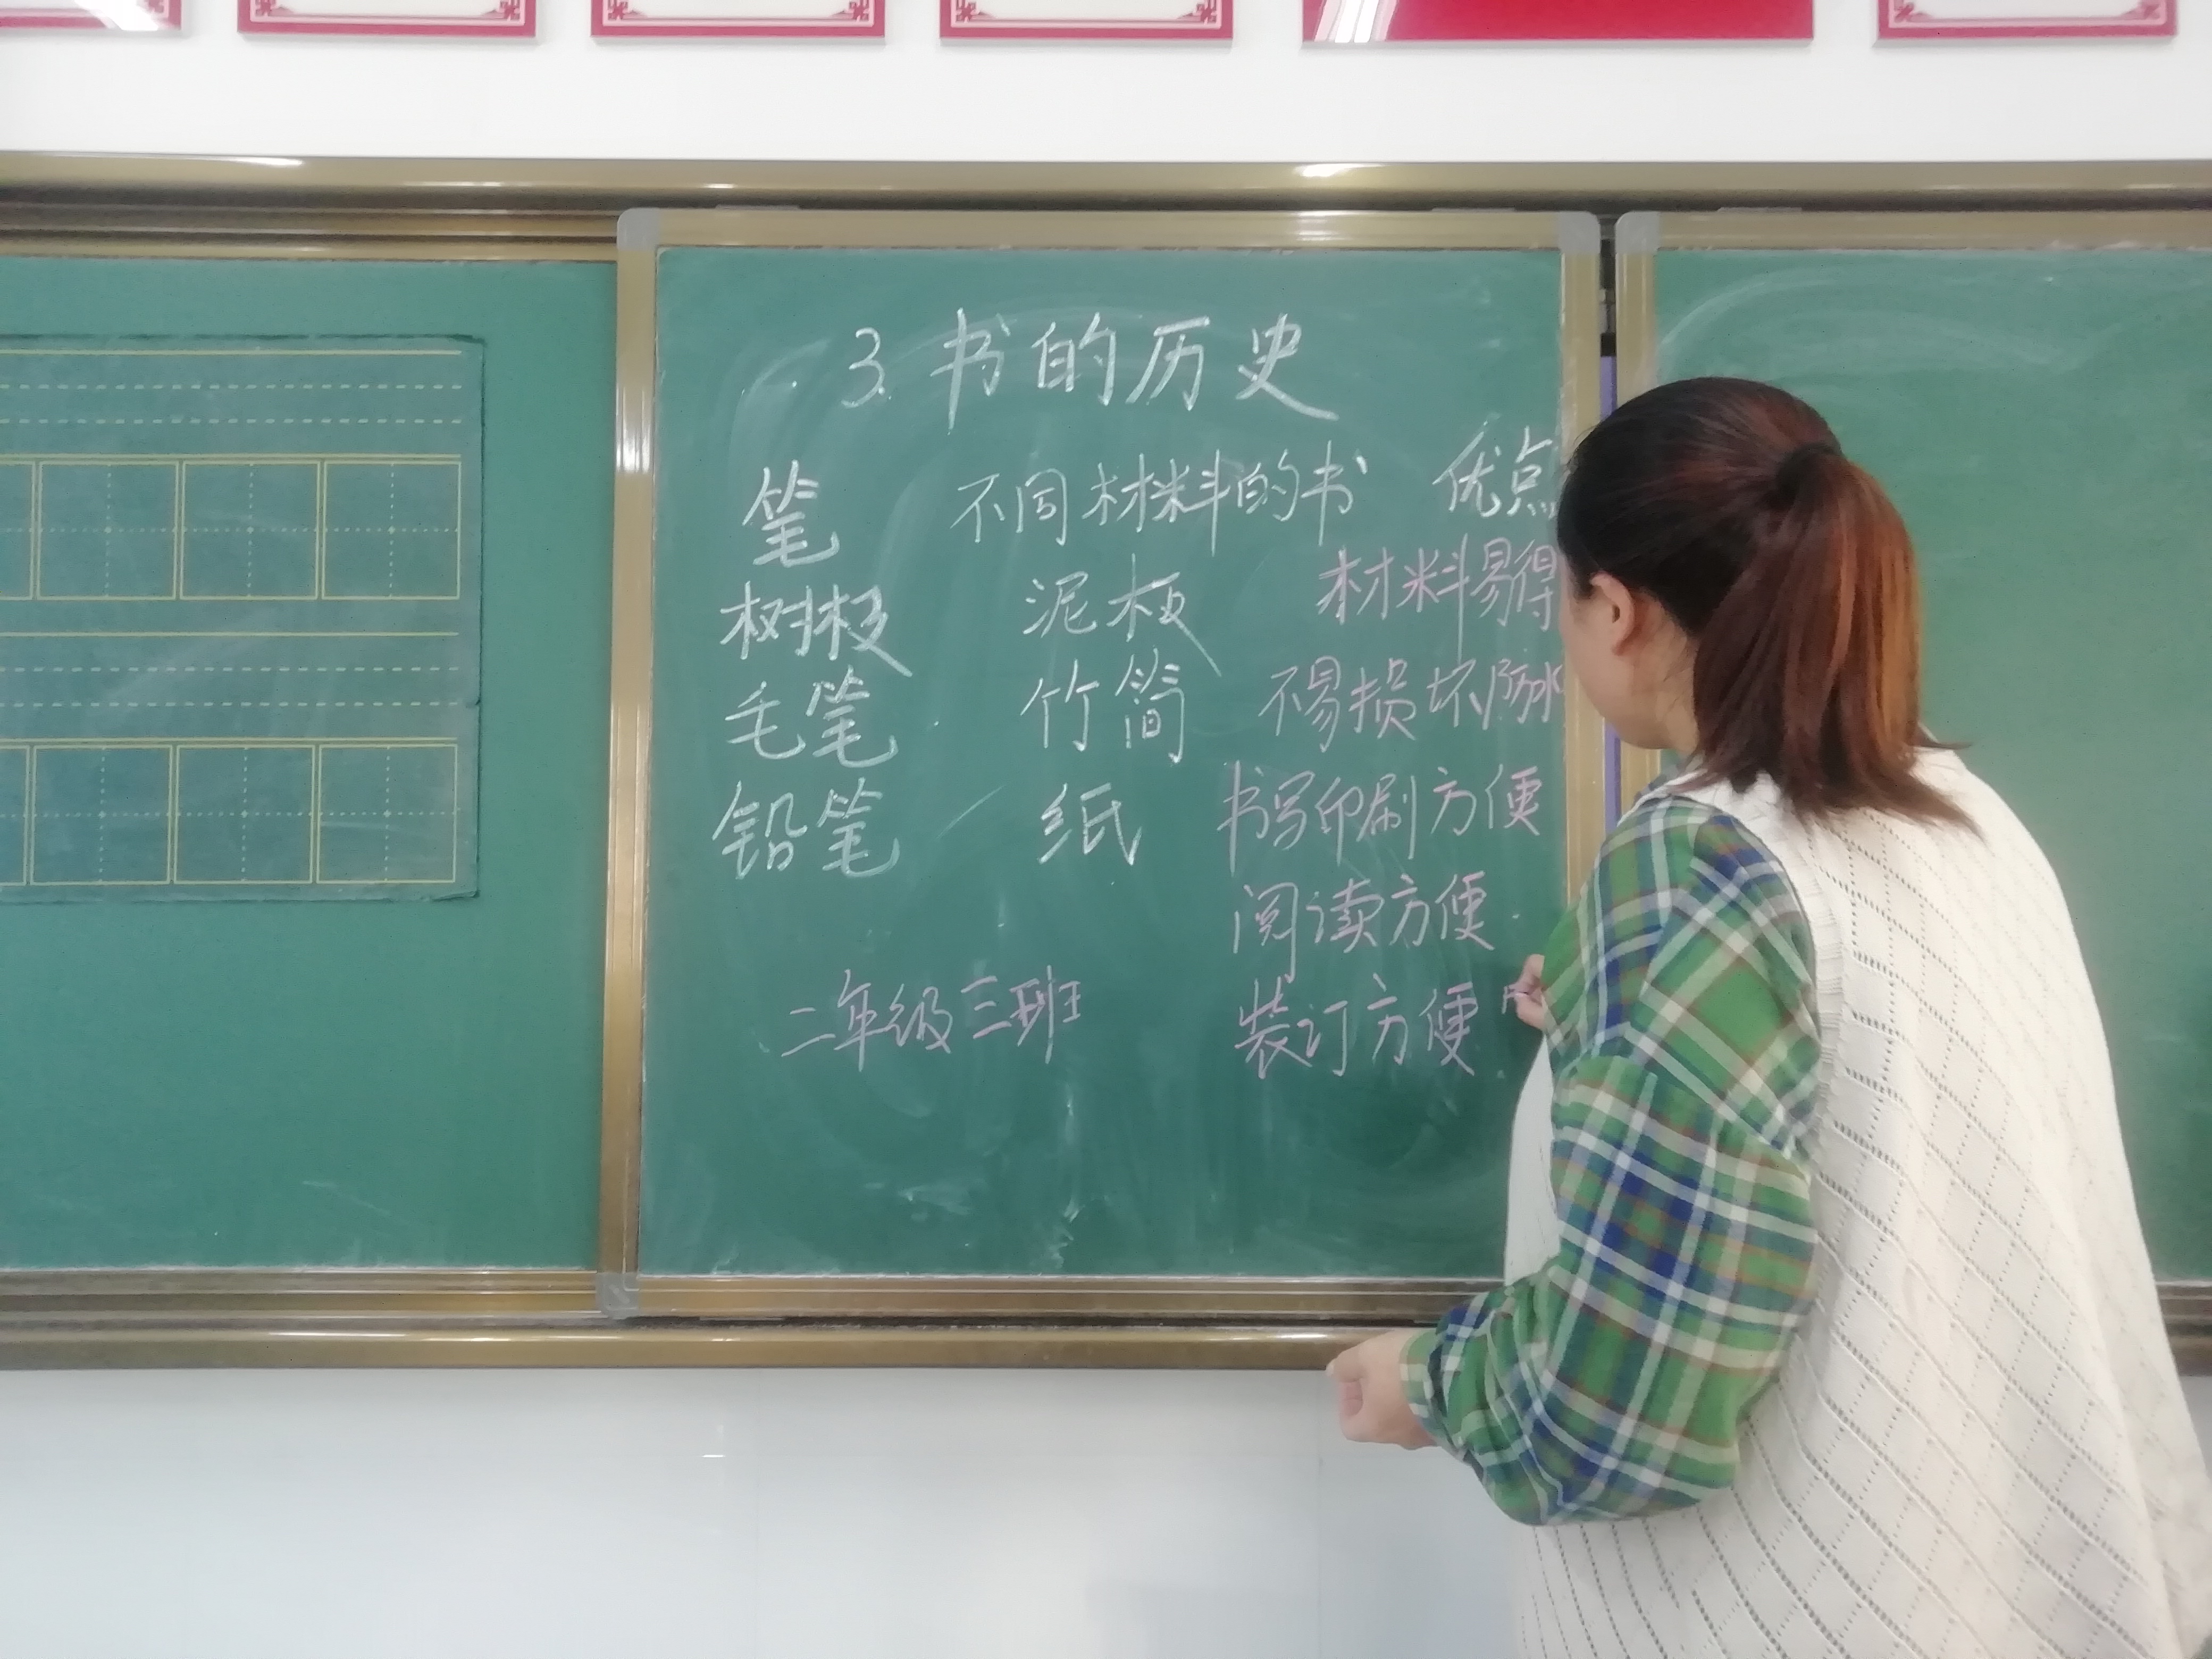 3. 书的历史
笔 不同材料的书 优点
树枝 泥板 材料易得
毛笔 竹简 不易损坏防水
铅笔 纸 书写印刷方便
阅读方便
二年级三班 装订方便